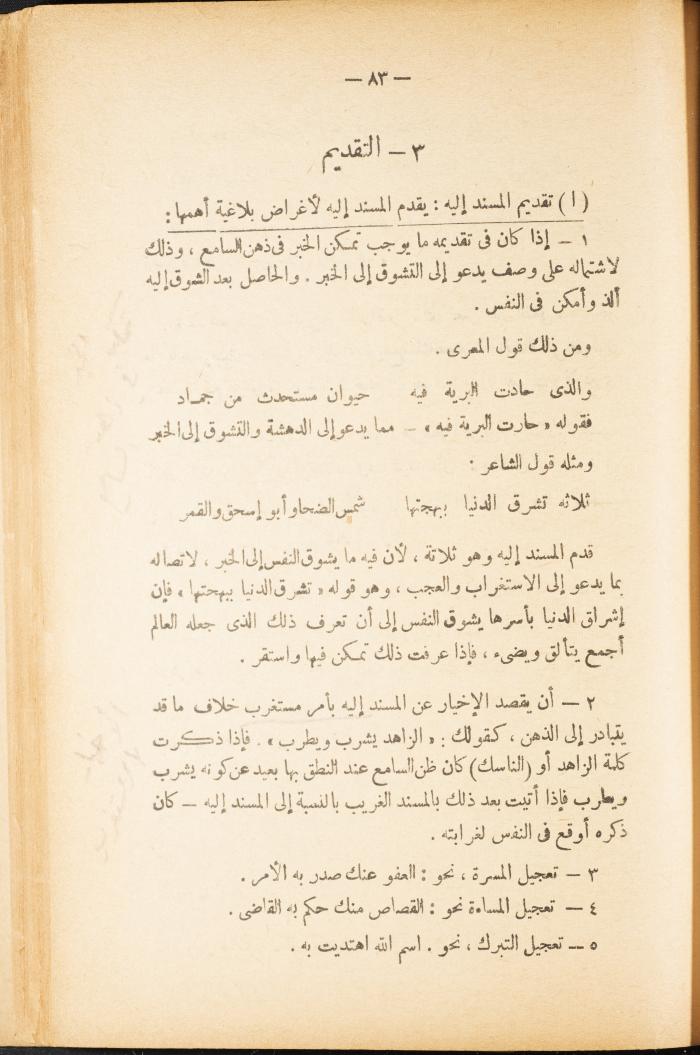 — ٨٣ —
٣ — التقديم
( ا ) تقديم المسند إليه : يقدم المسند إليه لأغراض بلاغية أهمها :
١ — إذا كان فى تقديمه ما يوجب تمكن الخبر فى ذهن السامع ، وذلك
لاشتماله على وصف يدعو إلى التشوق إلى الخبر . والحاصل بعد الشوق إليه
ألذ وأمكن فى النفس .
ومن ذلك قول المعرى .
والذى حادت البرية فيه حيوان مستحدث من جمـاد
فقوله « حارت البرية فيه » — مما يدعو إلى الدهشة والتشوق إلى الخبر
ومثله قول الشاعر :
ثلاثه تشرق الدنيا ببهجتها شمس الضحاو أبو إسحق والقمر
قدم المسند إليه وهو ثلاثة ، لأن فيه ما يشوق النفس إلى الخبر ، لاتصاله
بما يدعو إلى الاستغراب والعجب ، وهو قوله « تشرق الدنيا ببهجتها » فإن
إشراق الدنيا بأسرها يشوق النفس إلى أن تعرف ذلك الذى جعله العالم
أجمع يتألق ويضىء ، فإذا عرفت ذلك تمكن فيها واستقر .
٢ — أن يقصد الإخيار عن المسند إليه بأمر مستغرب خلاف ما قد
يقبادر إلى الذهن ، كقولك : « الزاهد يشرب ويطرب » . فإذا ذكرت
كلمة الزاهد أو (الناسك) كان ظن السامع عند النطق بها بعيد عن كونه يشرب
ويطرب فإذا أتيت بعد ذلك بالمسند الغريب بالنسبة إلى المسند إليه — كان
ذكره أوقع فى النفس لغرابته .
٣ — تعجيل المسرة ، نحو : العفو عنك صدر به الأمر .
٤ — تعجيل المساءة نحو : القصاص منك حكم به القاضى .
٥ — تعجيل التبرك ، نحو . اسم الله اهتديت به .